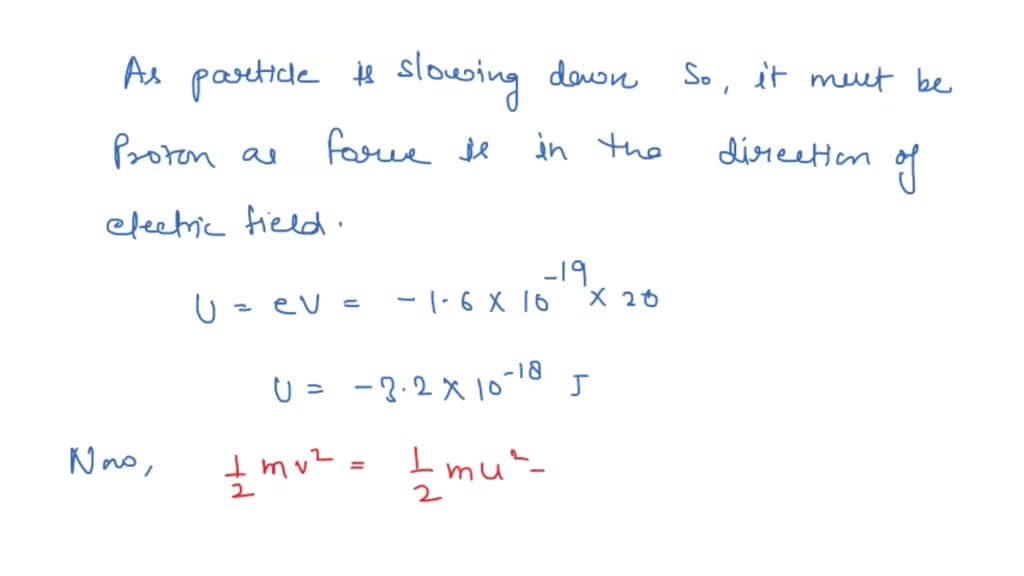 As particle is slowing down so, it must be
Proton as force is in the direction of
electric field.
U = eV = -1.6 × 10^-19 × 20
U = -3.2 × 10^-18 J
Now, 1/2 mv² = 1/2 mu² -